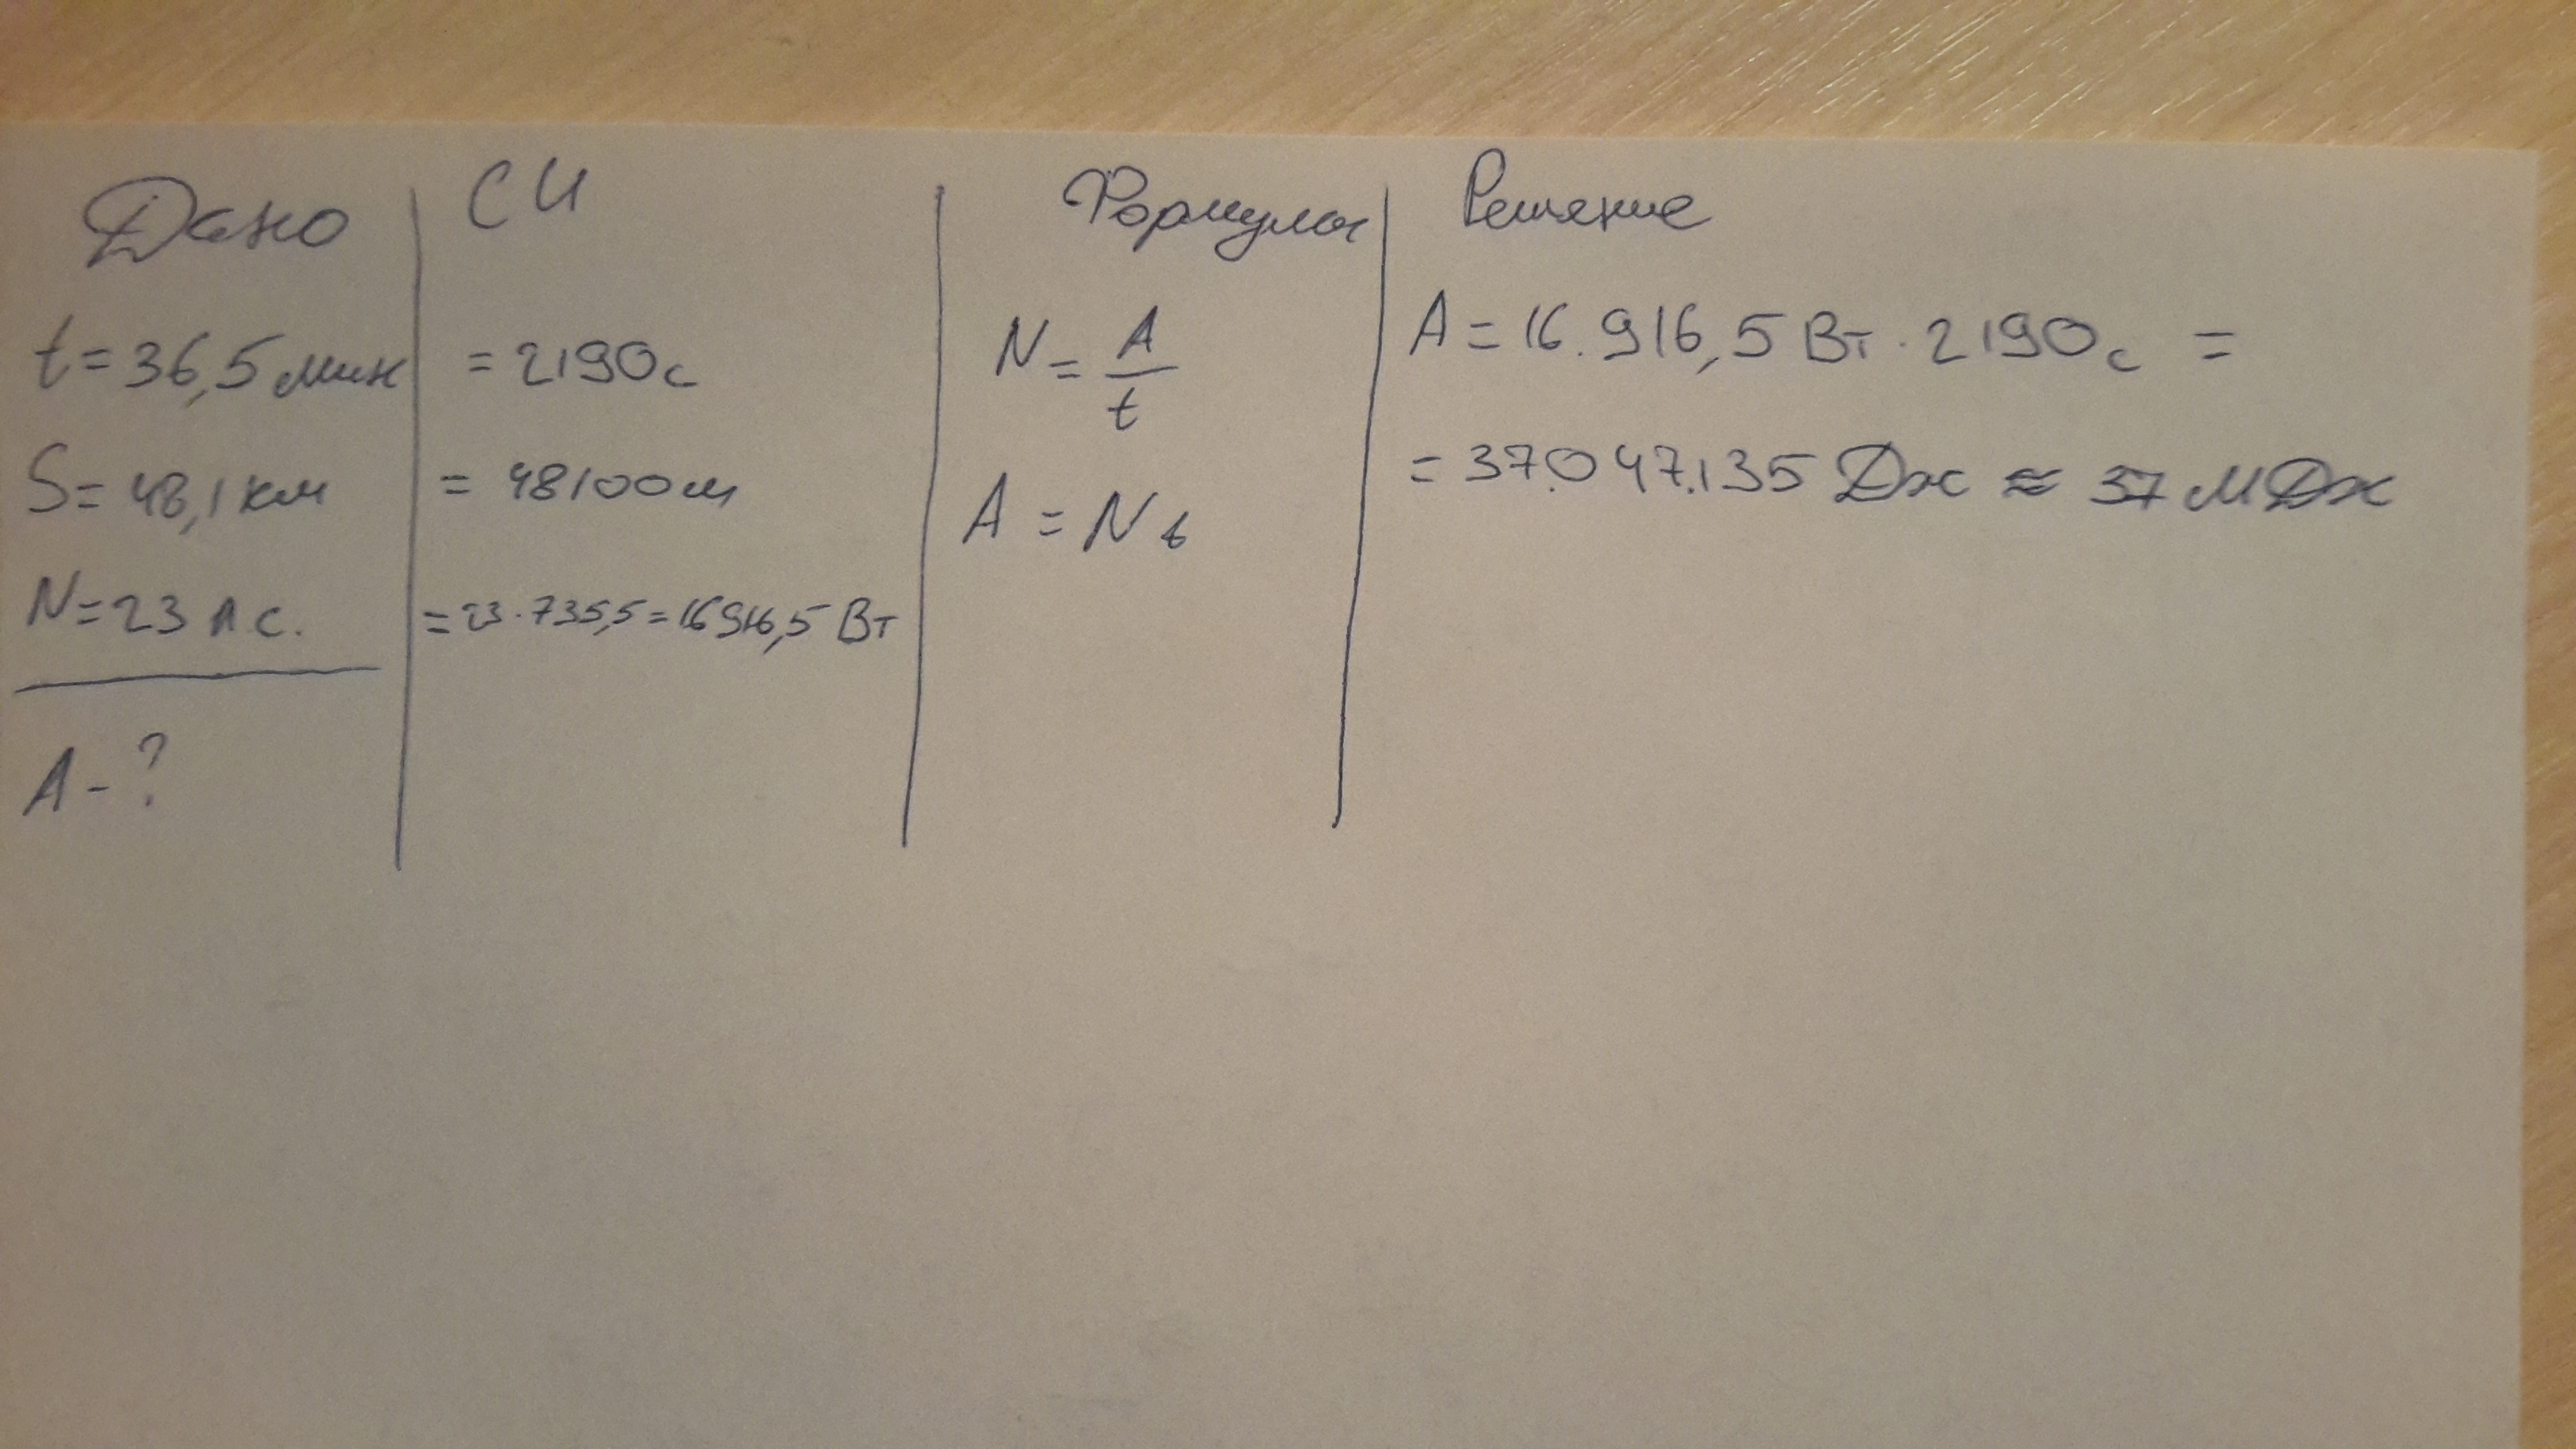 Дано
t = 36,5 мин
S = 48,1 км
N = 23 л.с.
А - ?
СИ
= 2190 с
= 48100 м
= 23 · 735,5 = 16916,5 Вт
Формулы
N = A / t
A = N t
Решение
A = 16.916,5 Вт · 2190 с =
= 37.047.135 Дж ≈ 37 МДж